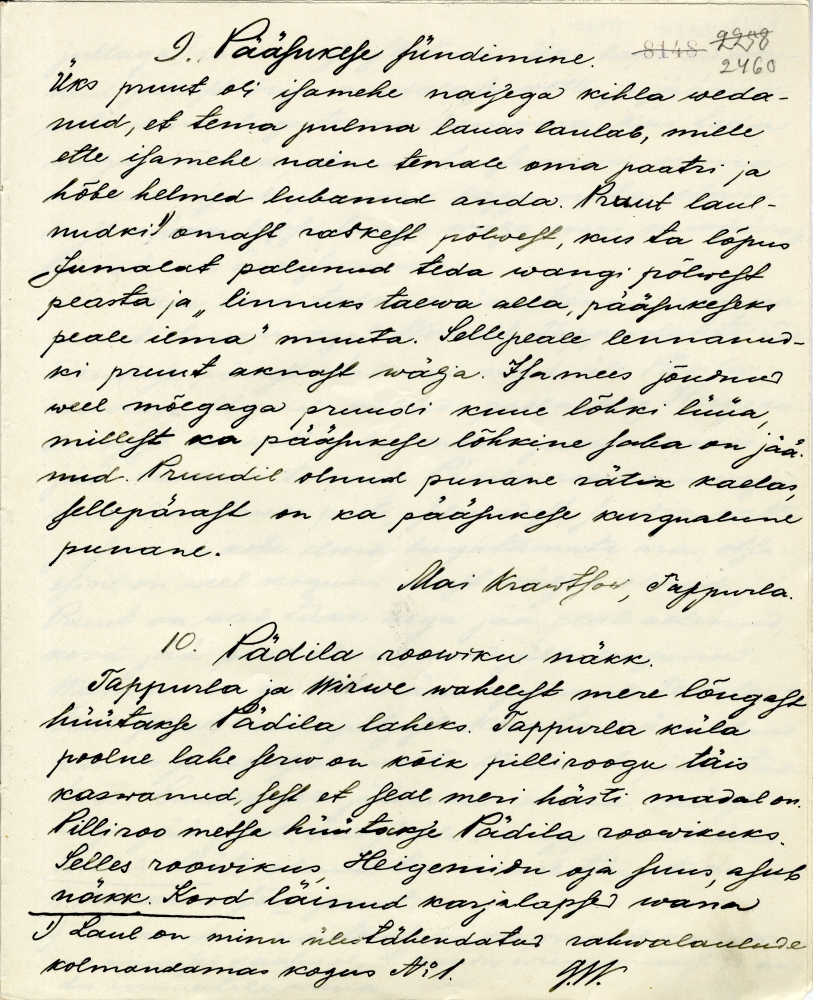 9. Pääsukese sündimine.
8148 2258
2460
Üks pruut oli isamehe naisega kihla weda-
nud, et tema pulma lauas laulab, mille
ette isamehe naine temale oma paatri ja
hõbe helmed lubanud anda. Pruut laul-
nudki¹) omast raskest põlwest, kus ta lõpus
Jumalat palunud teda wangi põlwest
peasta ja „linnuks taewa alla, pääsukeseks
peale ilma" muuta. Sellepeale lennanud-
ki pruut aknast wälja. Isamees jõudnud
weel mõegaga pruudi kuue lõhki lüüa,
millest ka pääsukese lõhkine saba on jää-
nud. Pruudil olnud punane rätik kaelas,
sellepärast on ka pääsukese kurgualune
punane.
Mai Krawtsow, Tappurla.
10. Pädila roowiku näkk.
Tappurla ja Wirwe wahelest mere lõugast
hüütakse Pädila laheks. Tappurla küla
poolne lahe serw on kõik pilliroogu täis
kaswanud, sest et seal meri hästi madal on.
Pilliroo metsa hüütakse Pädila roowikuks.
Selles roowikus, Heigemiidu oja suus, asub
näkk. Kord läinud karjalapsed wana
¹) Laul on minu ülestähendatud rahwalaulude
kolmandamas kogus № 1. J.W.